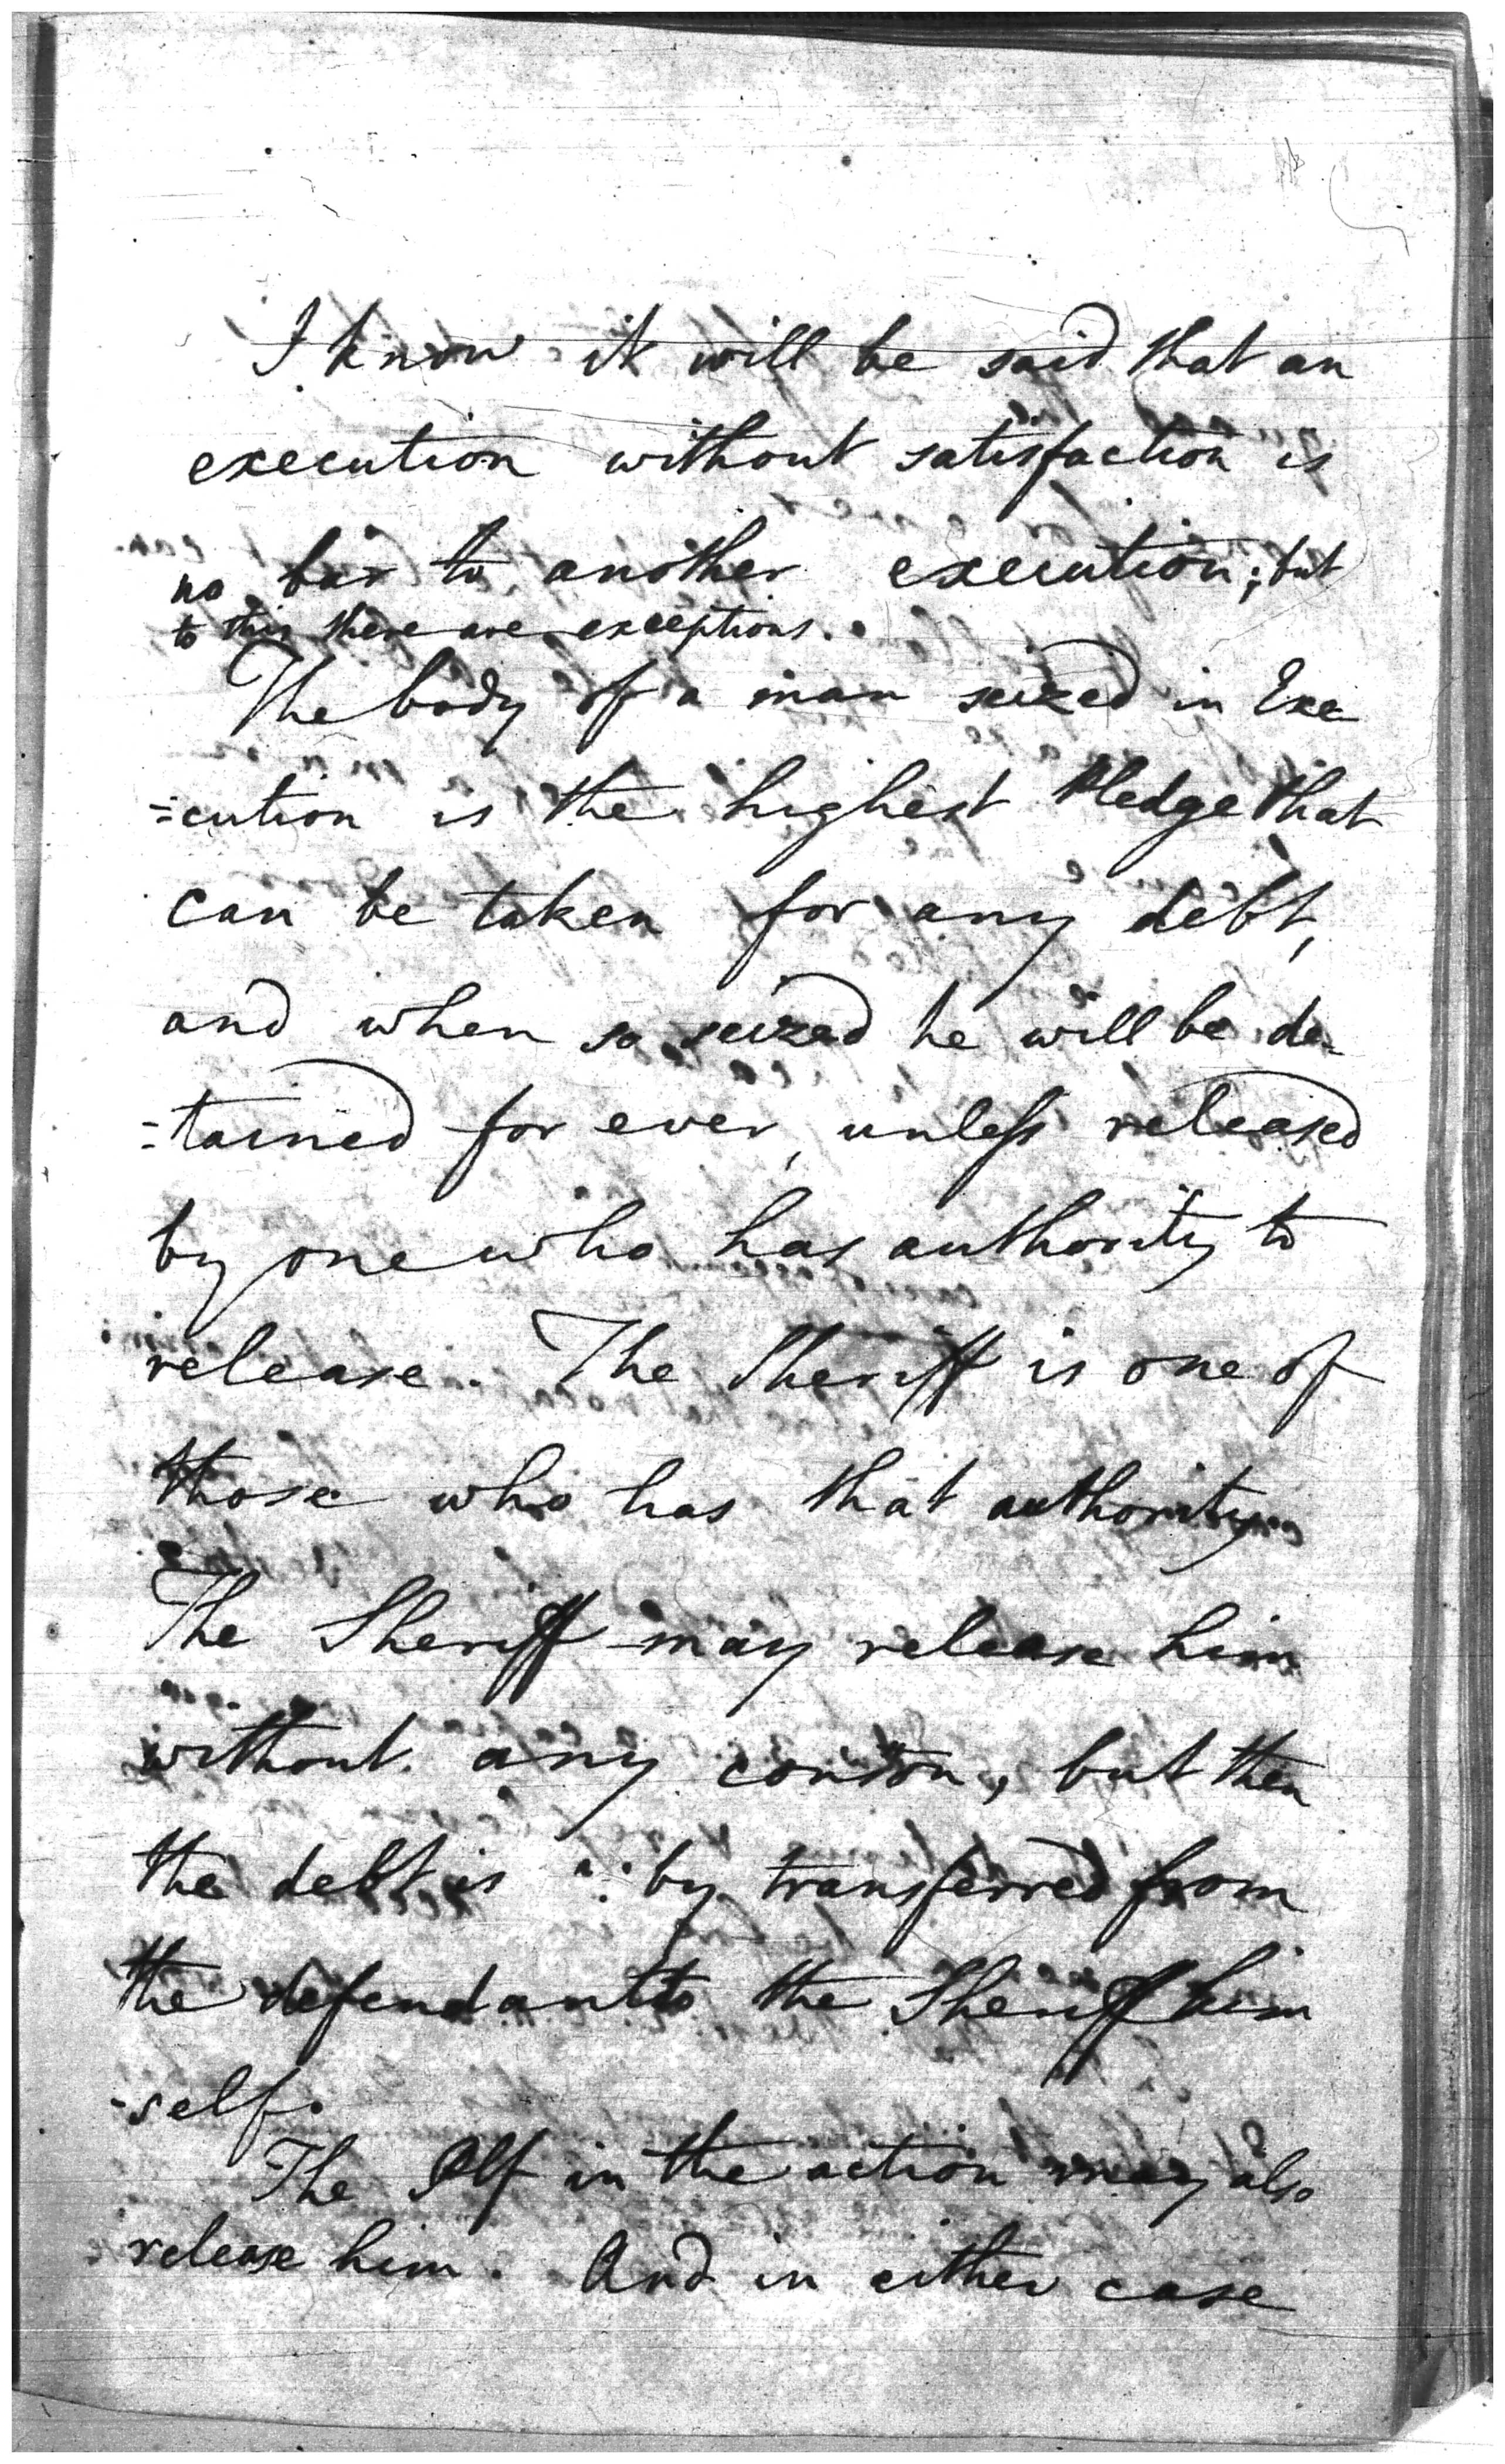 I know it will be said that an
execution without satisfaction is
no bar to another execution; but
to this there are exceptions.
The body of a man seized in Exe
=cution is the highest Pledge that
can be taken for any debt,
and when so seized he will be de=
=tained for ever, unless released
by one who has authority to
release. The Sheriff is one of
those who has that authority
The Sheriff may release him
without any conson, but then
the debt is ∴ by transferred from
the defendant to the Sheriff him
-self.
The Plf in the action may also
release him. And in either case